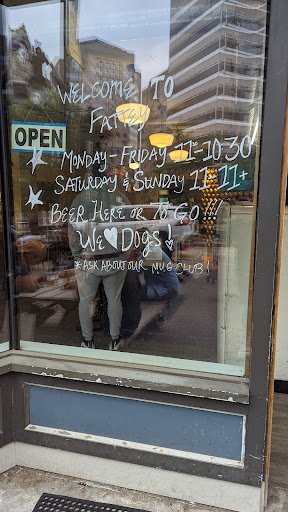 WELCOME TO
FATTEY
OPEN
MONDAY - FRIDAY 11-10:30
SATURDAY & SUNDAY 11-11+
BEER HERE OR TO GO!!!
WE ♥ DOGS!
*ASK ABOUT OUR MUG CLUB!